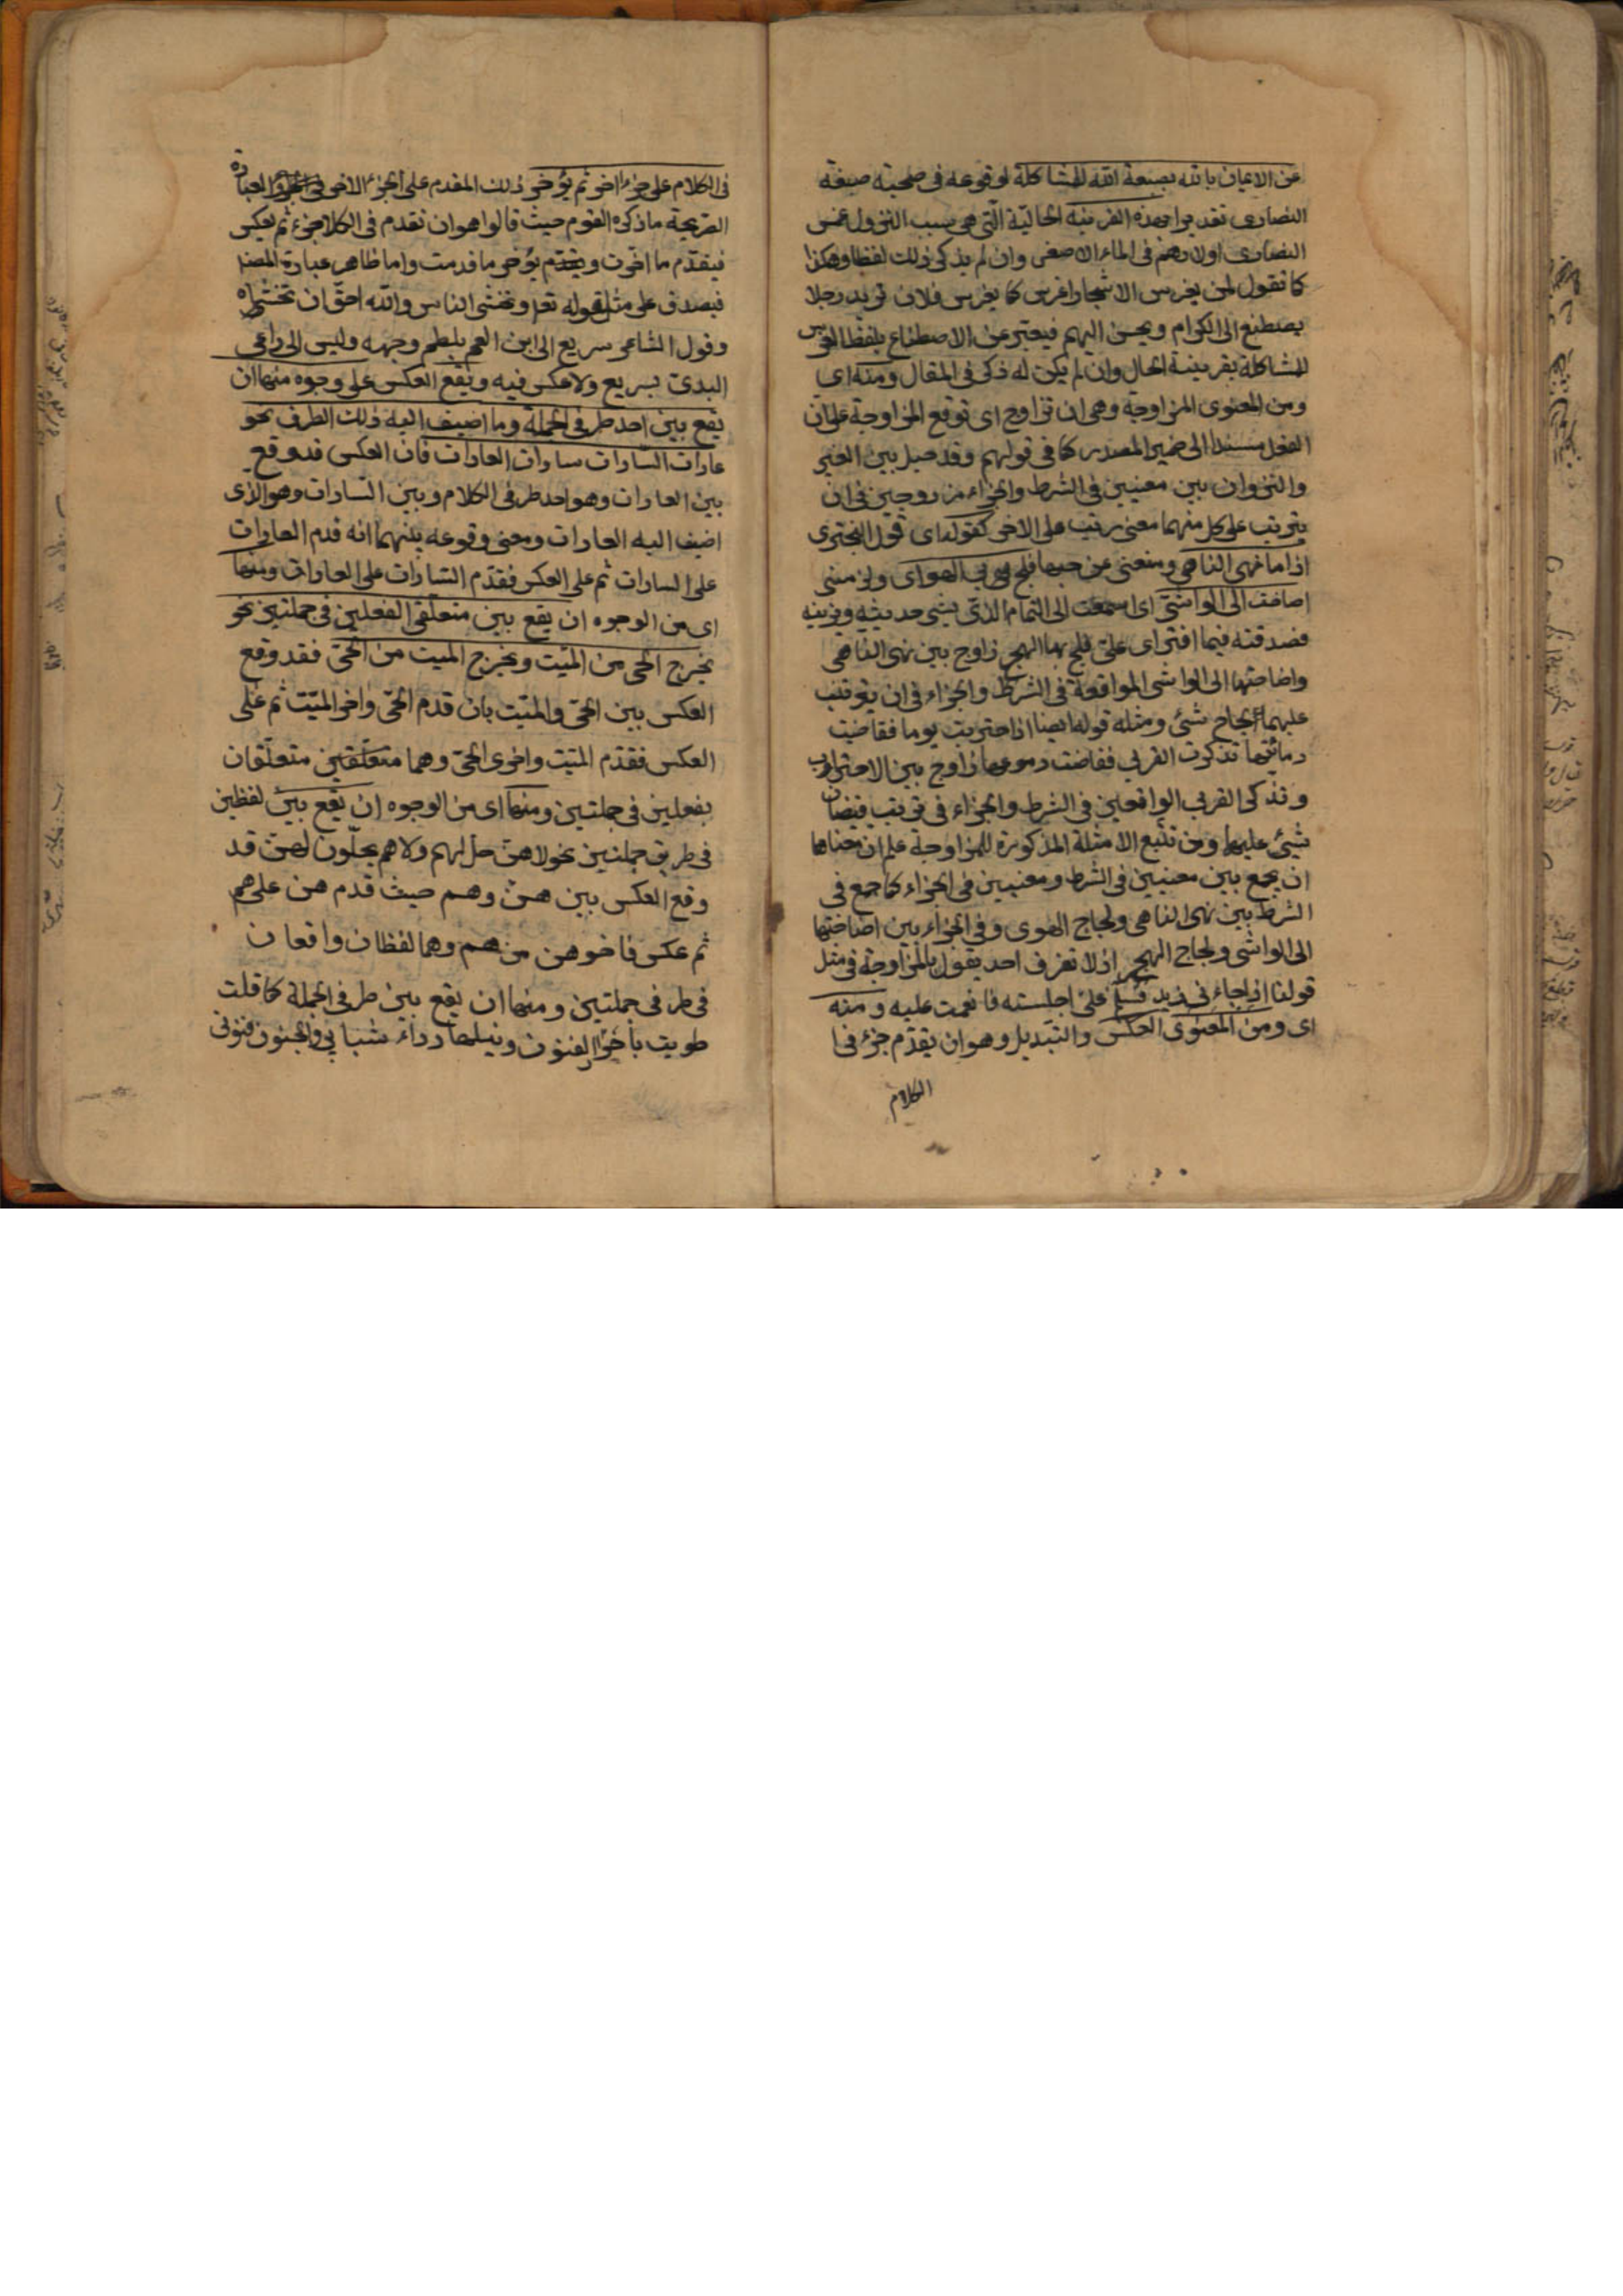 عن الايمان بالله بصبغة الله للمشاكلة لوقوعه فى صحبته صبغة
النصارى تقديرا بهذه القرينة الحالية التى هى سبب النزول من غمس
النصارى اولادهم فى الماء الاصفر وان لم يذكر ذلك لفظا وهكذا
كما تقول لمن يغرس الاشجار اغرس كما يغرس فلان تريد رجلا
يصطنع الى الكرام ويحسن اليهم فيعبر عن الاصطناع بلفظ الغرس
للمشاكلة بقرينة الحال وان لم يكن له ذكر فى المقال ومنه اى
ومن المعنوى المزاوجة وهى ان تزاوج اى توقع المزاوجة على ان
الفعل مسندا الى ضمير المصدر كما فى قولهم وقد حيل بين العير
والنزوان بين معنيين فى الشرط والجزاء مزدوجين فى ان
يترتب على كل منهما معنى رتب على الاخر كقوله اى قول البحترى
اذا ما نهى الناهى ومنعنى عن حبها فلج بى الهوى ولزمنى
اصاخت الى الواشى اى استمعت الى النمام الذى يشى حديثه ويزينه
فصدقته فيما افترى على فلج بها الهجر زاوج بين نهى الناهى
واصاختها الى الواشى الواقعة فى الشرط والجزاء فى ان يترتب
عليهما لجاج شئ ومثله قوله ايضا اذا احتربت يوما ففاضت
دمائها تذكرت القربى ففاضت دموعها زاوج بين الاحتراب
وتذكر القربى الواقعين فى الشرط والجزاء فى ترتيب فيضان
شيئ عليهما ومن تتبع الامثلة المذكورة للمزاوجة علم ان معناها
ان يجمع بين معنيين فى الشرط ومعنيين فى الجزاء كما جمع فى
الشرط بين نهى الناهى ولجاج الهوى وفى الجزاء بين اصاختها
الى الواشى ولجاج الهجر اذ لا نعرف احد يقول بالمزاوجة فى مثل
قولنا اذا جاءنى زيد فسلم على اجلسته فانعمت عليه ومنه
اى ومن المعنوى العكس والتبديل وهو ان يقدم جزء فى ا
الكلام
فى الكلام على جزء اخر ثم يؤخر ذلك المقدم على الجزء الاخر والعبارة
الصريحة ما ذكره القوم حيث قالوا هو ان تقدم فى الكلام جزء ثم تعكس
فيقدم ما اخرت ويؤخر ما قدمت واما ظاهر عبارة المص
فيصدق على مثل قوله تعا وتخشى الناس والله احق ان تخشيه
وقول الشاعر سريع الى ابن العم يلطم وجهه وليس الى داعى
الندى بسريع ولا عكس فيه ويقع العكس على وجوه منها ان
يقع بين احد طرفى الجملة وما اضيف اليه ذلك الطرف نحو
عادات السادات سادات العادات فان العكس قد وقع
بين العادات وهو احد طرفى الكلام وبين السادات وهو الذى
اضيف اليه العادات ومعنى وقوعه بينهما انه قدم العادات
على السادات ثم على العكس فقدم السادات على العادات ومنها
اى من الوجوه ان يقع بين متعلقى الفعلين فى جملتين نحو
يخرج الحى من الميت ويخرج الميت من الحى فقد وقع
العكس بين الحى والميت بان قدم الحى واخر الميت ثم على
العكس فقدم الميت واخر الحى وهما متعلقين متعلقان
بفعلين فى جملتين ومنها اى من الوجوه ان يقع بين لفظين
فى طرفى جملتين نحو لا هن حل لهم ولا هم يحلون لهن قد
وقع العكس بين هن وهم حيث قدم هن على هم
ثم عكس فاخر هن من هم وهما لفظان واقعان
فى طرفى جملتين ومنها ان يقع بين طرفى الجملة كما قلت
طويت باحراز الفنون ونيلها رداء شبابى والجنون فنونى